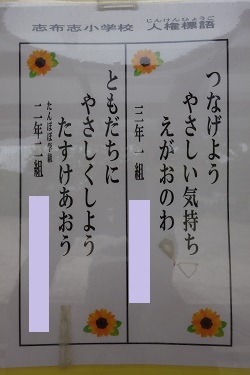 志布志小学校 人権標語
じんけんひょうご
つなげよう
やさしい気持ち
えがおのわ
三年一組
ともだちに
やさしくしよう
たすけあおう
たんぽぽ学級
二年二組